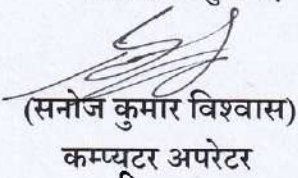 (सनोज कुमार विश्वास)
कम्प्यटर अपरेटर